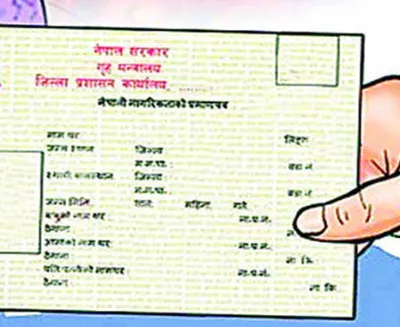 नेपाल सरकार
गृह मन्त्रालय
जिल्ला प्रशासन कार्यालय, ............
नेपाली नागरिकताको प्रमाणपत्र
नाम थर लिङ्ग
जन्म स्थान जिल्ला
गा.पा. : वडा नं
स्थायी बासस्थान: जिल्ला :
गा.पा. : वडा नं
जन्म मिति साल: महिना गते :
बाबुको नाम थर ना.प्र.नं.
ठेगाना :
आमाको नाम थर: ना.प्र.नं.:
ठेगाना : ना कि
पति/पत्नीको नामथर: ना.प्र.नं.
ठेगाना : ना कि